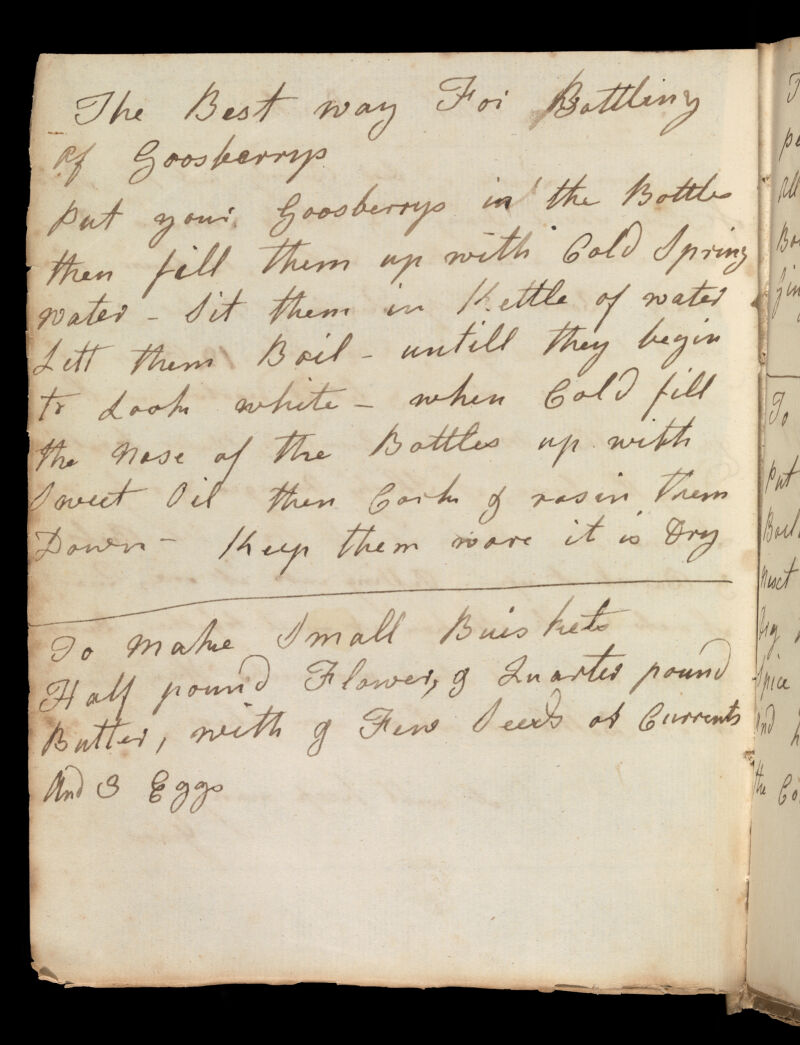 The Best way For Bottling
of Goosberrys
put your Goosberrys in the Bottles
then fill them up with Cold Spring
water - Sit them in Kettle of water
Lett them Boil - untill they begin
to Look white - when Cold fill
the nose of the Bottles up with
Sweet Oil then Cork & rosin them
Down - Keep them ware it is Dry
To make Small Buiskets
Half pound Flower, & Quarter pound
Butter, with & Few Seeds or Currents
And 3 Eggs
To
put
Spice
And
the